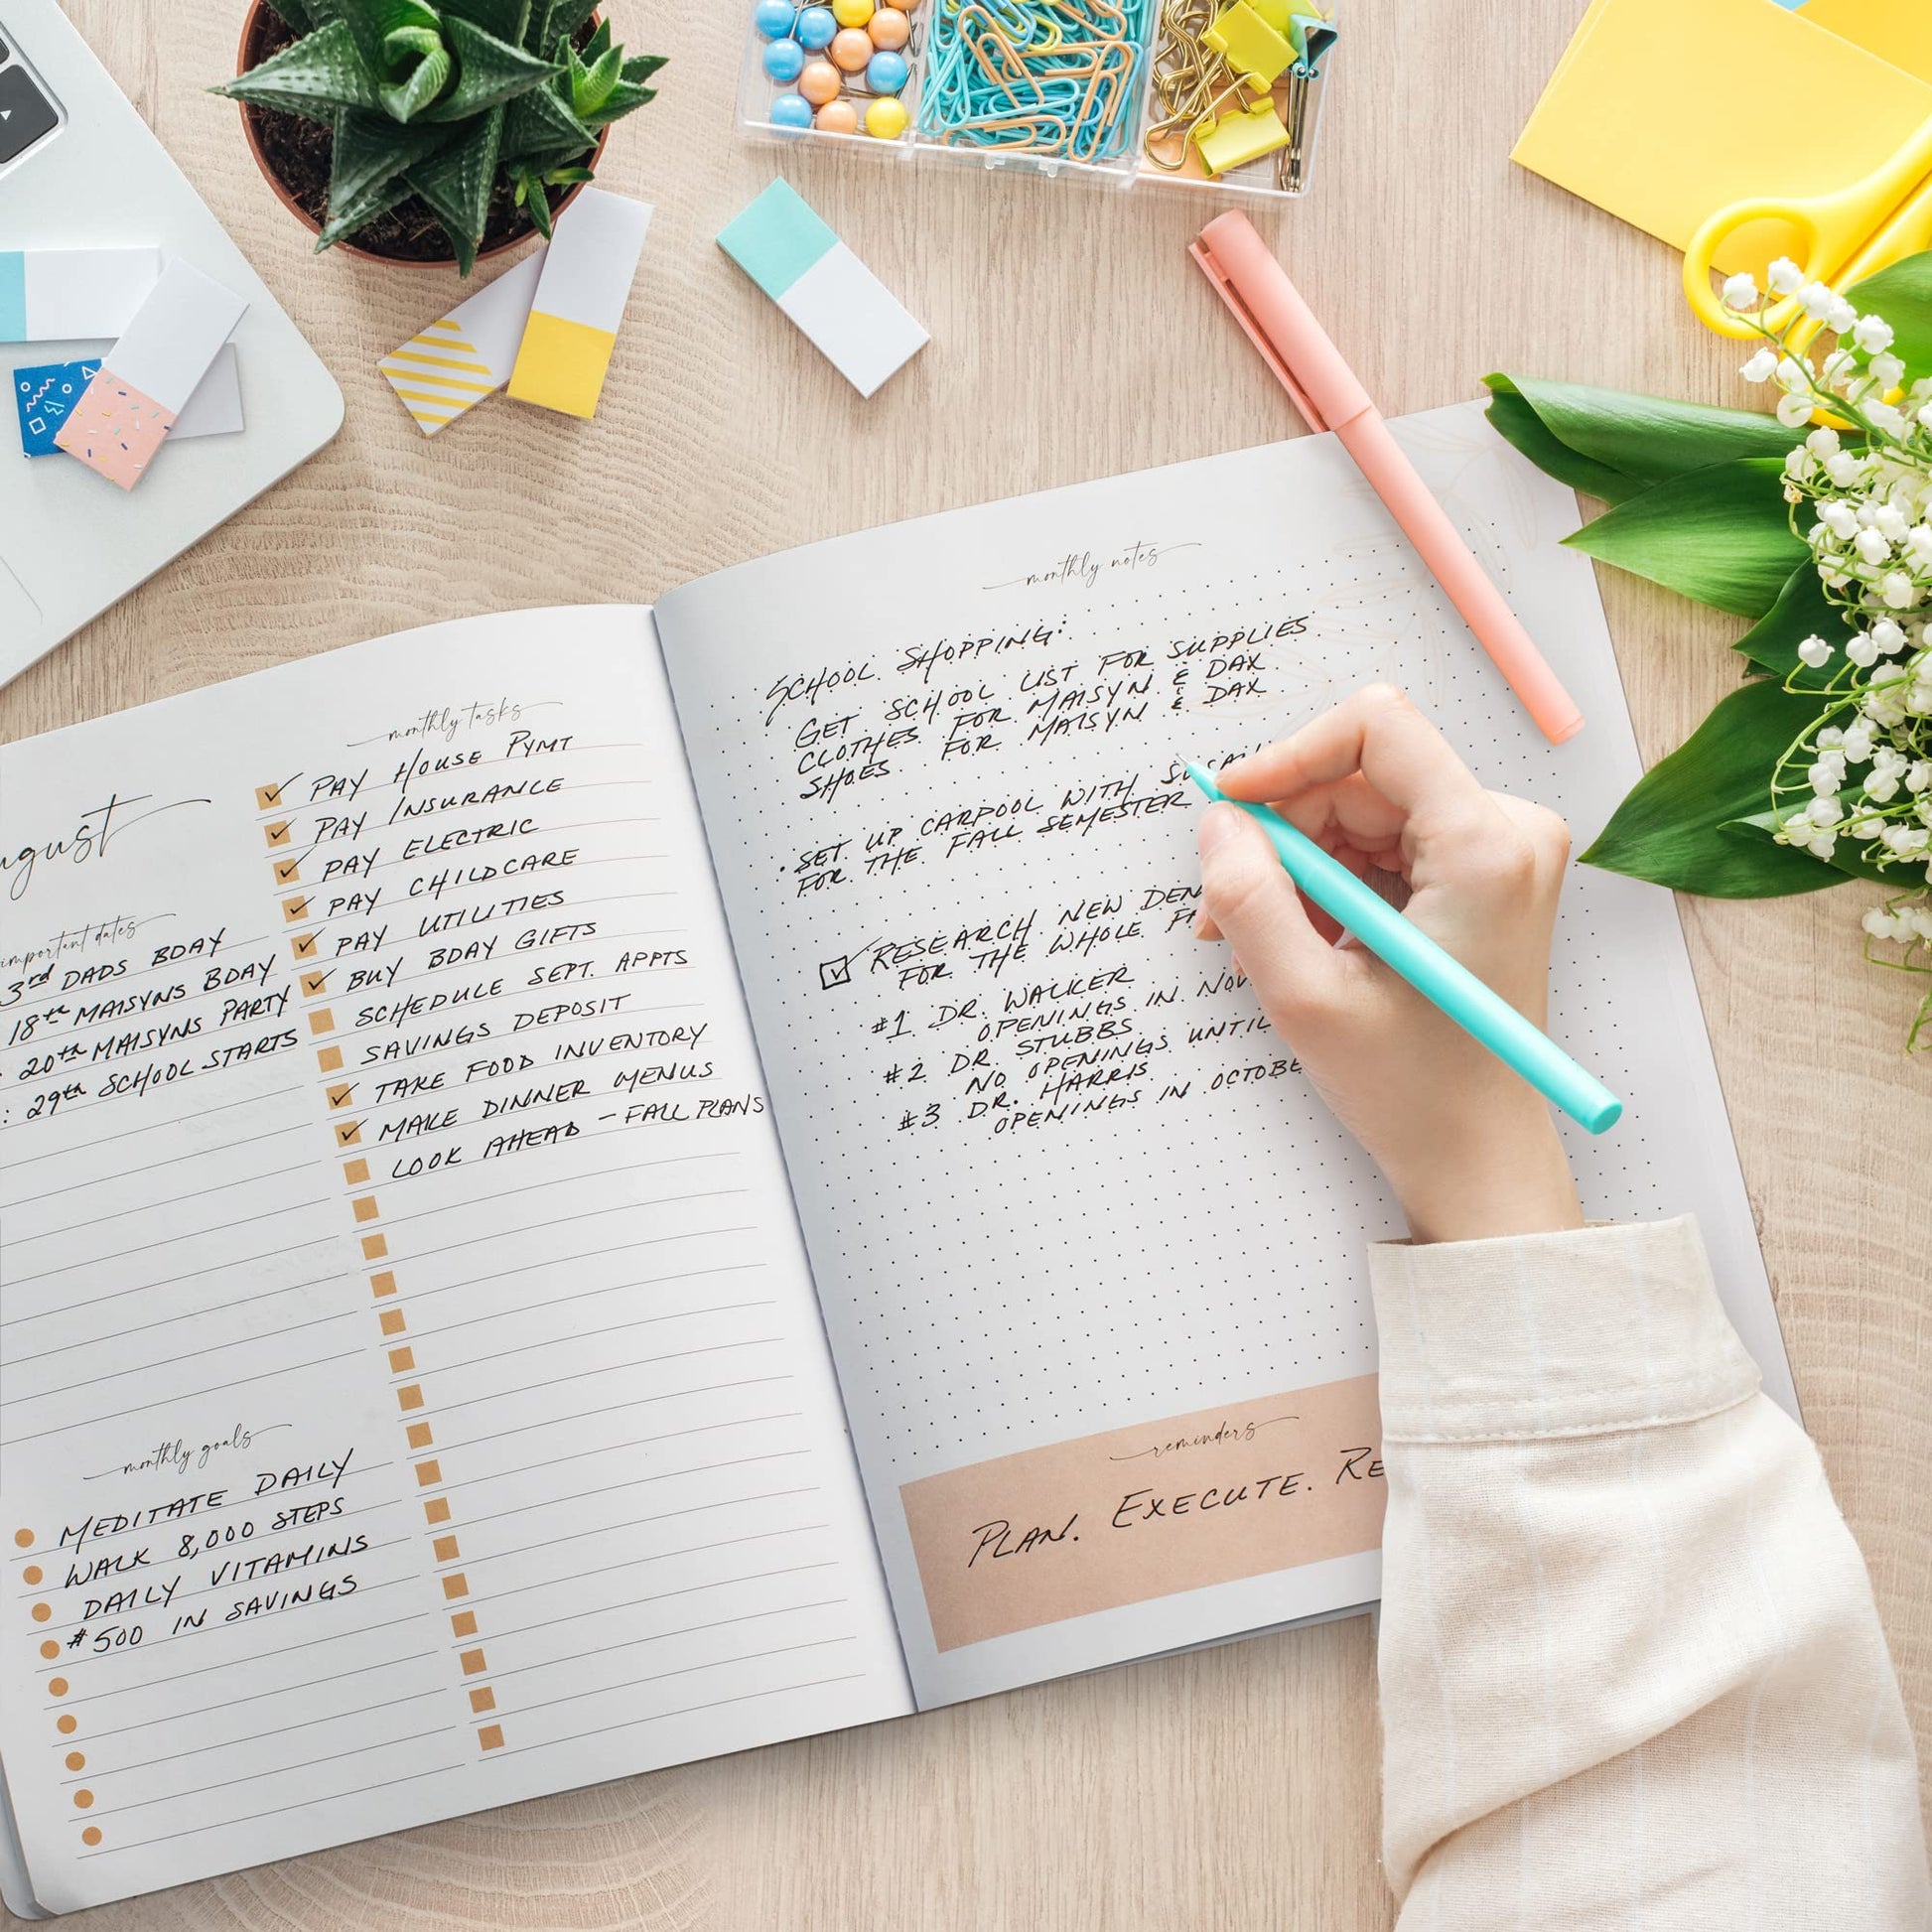 important dates
3rd DADS BDAY
18th MAISYNS BDAY
20th MAISYNS PARTY
29th SCHOOL STARTS
monthly goals
MEDITATE DAILY
WALK 8,000 STEPS
DAILY VITAMINS
$500 IN SAVINGS
monthly tasks
PAY HOUSE PYMT
PAY INSURANCE
PAY ELECTRIC
PAY CHILDCARE
PAY UTILITIES
BUY BDAY GIFTS
SCHEDULE SEPT. APPTS
SAVINGS DEPOSIT
TAKE FOOD INVENTORY
MAKE DINNER MENUS
LOOK AHEAD - FALL PLANS
monthly notes
SCHOOL SHOPPING:
GET SCHOOL LIST FOR SUPPLIES
CLOTHES FOR MAISYN & DAX
SHOES FOR MAISYN & DAX
SET UP CARPOOL WITH
FOR THE FALL SEMESTER
RESEARCH NEW
FOR THE WHOLE
#1 DR. WALKER
OPENINGS IN
#2 DR. STUBBS
NO OPENINGS UNTIL
#3 DR. HARRIS
OPENINGS IN
reminders
PLAN. EXECUTE.